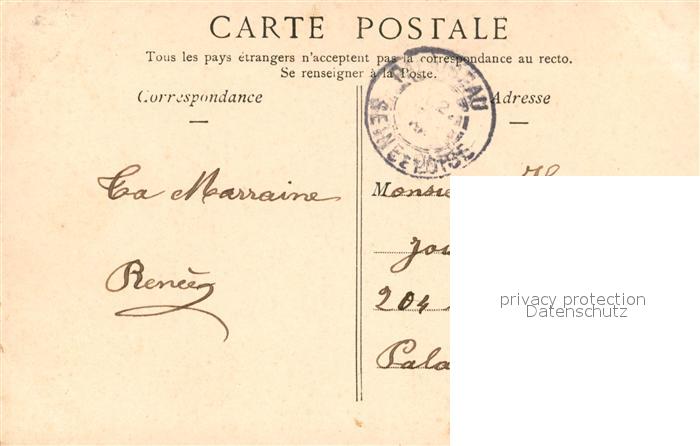 CARTE POSTALE
Tous les pays étrangers n'acceptent pas la correspondance au recto.
Se renseigner à la Poste.
Correspondance
Adresse
SEINE ET OISE
Ta Marraine
Renée
Monsie
204
Pala
privacy protection
Datenschutz